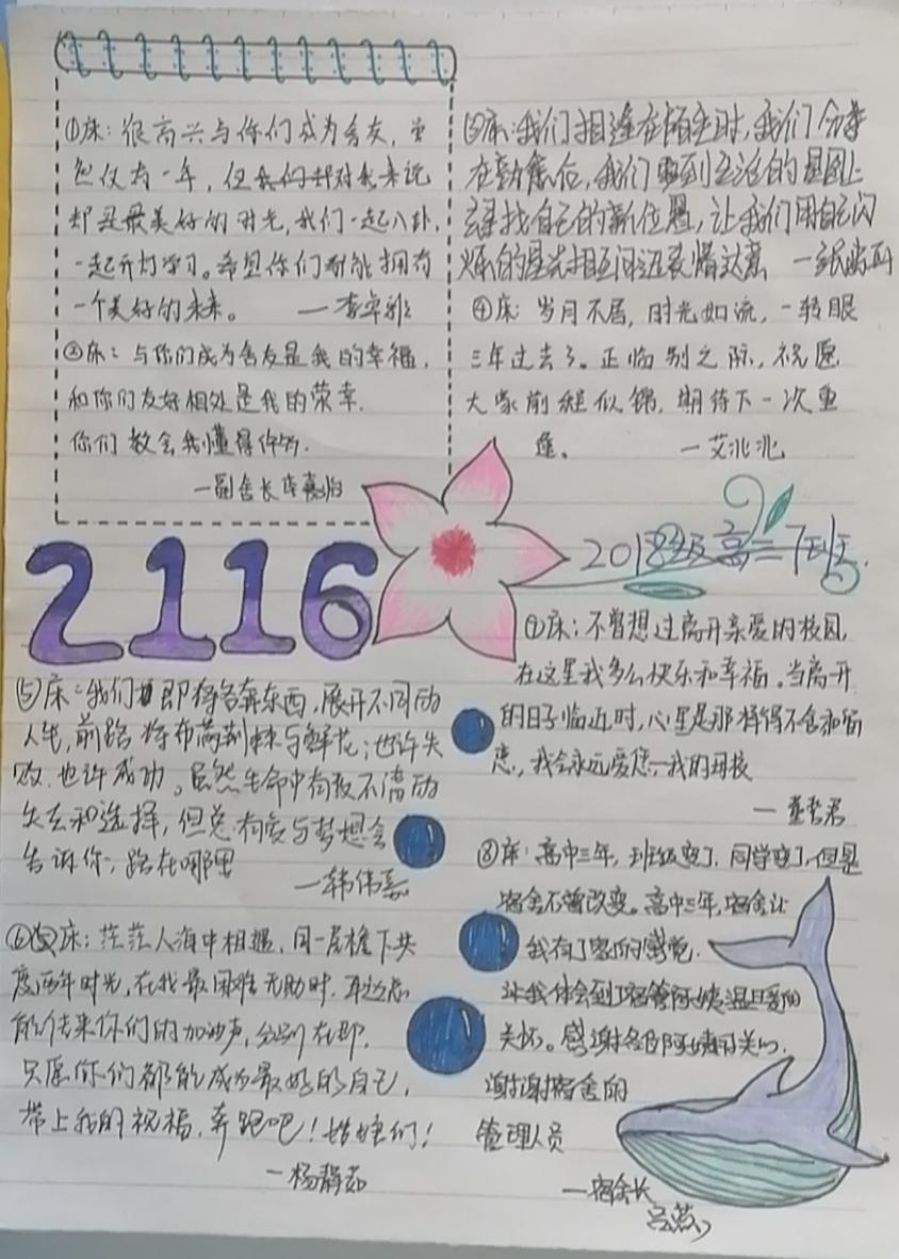 ①床：很高兴与你们成为舍友，虽
然仅有一年，但我们却对我来说
却是最美好的时光，我们一起八卦，
一起开灯学习。希望你们都能拥有
一个美好的未来。 —李卓雅
②床：与你们成为舍友是我的幸福，
和你们友好相处是我的荣幸，
你们教会我懂得
—副舍长
③床：我们相逢在陌生时，我们分享
在勤奋后，我们要到生活的星图上
寻找自己的新位置，让我们用自己闪
烁的星光相互
④床：岁月不居，时光如流，一转眼
三年过去了。正临别之际，祝愿
大家前程似锦，期待下一次重
逢。 —艾兆兆
2116
2018级高三7班
⑤床：我们即将各奔东西，展开不同的
人生，前路将布满荆棘与鲜花；也许失
败，也许成功。虽然生命中有数不清的
失去和选择，但总有爱与梦想会
告诉你，路在哪里
—韩伟
⑥床：茫茫人海中相遇，同一屋檐下共
度两年时光，在我最困难无助时，耳边总
能传来你们的加油声，分别在即，
只愿你们都能成为最好的自己，
带上我的祝福，奔跑吧！姐妹们！
—杨静茹
⑦床：不曾想过离开亲爱的校园，
在这里我多么快乐和幸福。当离开
的日子临近时，心里是那样得不舍和留
恋，我会永远爱您—我的母校
—董哲君
⑧床：高中三年，班级变了，同学变了，但是
宿舍不曾改变。高中三年，宿舍让
我有了家的感觉，
让我体会到了宿管阿姨温暖的
关怀。感谢各位阿姨的关心，
谢谢宿舍的
管理人员
—宿舍长